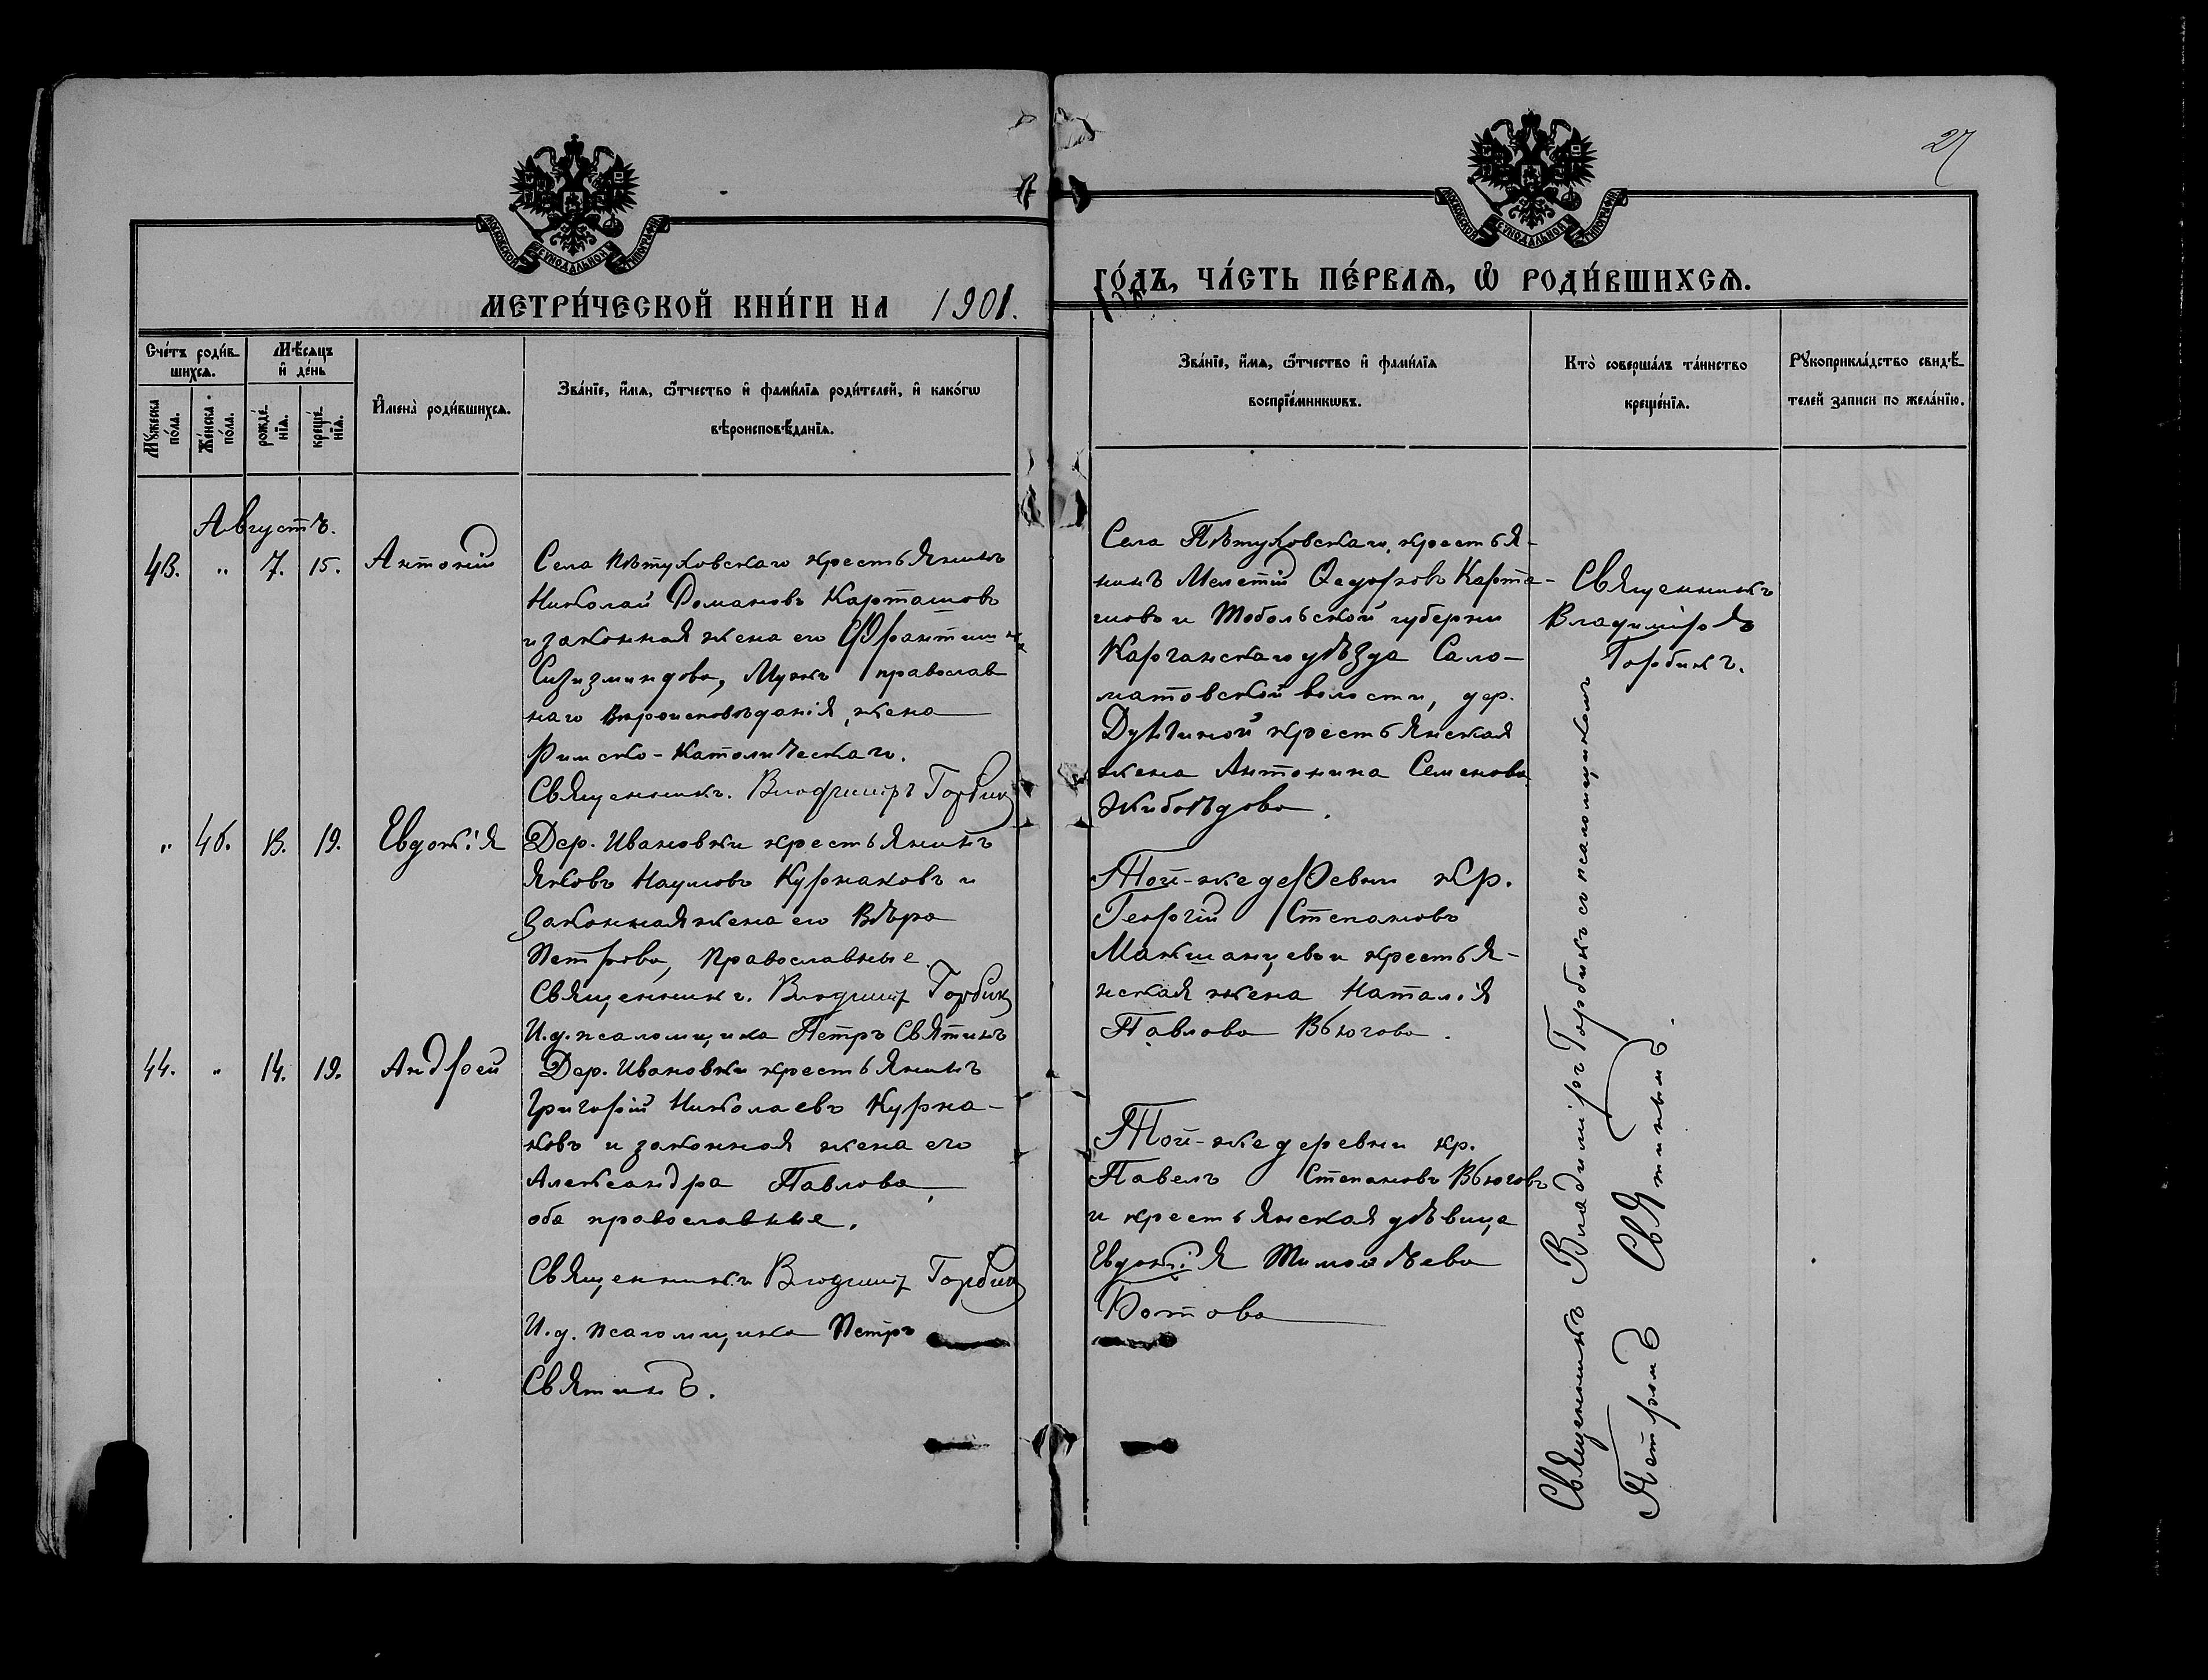 27
МОСКОВСКОЙ СУНОДАЛЬНОЙ ТИПОГРАФІИ
МОСКОВСКОЙ СУНОДАЛЬНОЙ ТИПОГРАФІИ
МЕТРИ́ЧЕСКОЙ КНИ́ГИ НА 1901.
ГО́ДЪ, ЧА́СТЬ ПЕ́РВАѦ, Ѽ РОДИ́ВШИХСѦ.
Сче́тъ роди́в-
шихсѧ.
Мѣ́сяцъ
и҆ де́нь
Мꙋ́жеска
по́ла.
Же́нска
по́ла.
рожде́-
нїѧ.
креще́-
нїѧ.
И҆мена̀ роди́вшихсѧ.
Зва́нїе, и҆́мѧ, ѻ҆́тчество и҆ фами́лїѧ роди́телей, и҆ како́гѡ
вѣроисповѣ́данїѧ.
Зва́нїе, и҆́мѧ, ѻ҆́тчество и҆ фами́лїѧ
воспрїе́мникѡвъ.
Кто̀ соверша́лъ та́инство
креще́нїѧ.
Рꙋкоприкла́дство свидѣ́-
телей записи по жела́нїю.
Августъ.
43. " 7. 15. Антоній
Села Пѣтуховскаго крестьянинъ
Николай Романовъ Карташовъ
и законная жена его
Сигизмундова, Мужъ православ
наго вѣроисповѣданія, жена
Римско-Католическаго.
Священникъ. Владиміръ Горбик
Села Пѣтуховскаго, крестья-
нинъ Мелетій Ѳедоровъ Карта-
шовъ и Тобольской губерніи
Карганскаго уѣзда Сало-
матовской волости, дер.
крестьянская
жена Антонина Семенова
Жибоѣдова.
Священникъ
Владиміръ
Горбикъ.
" 46. 13. 19. Евдокія
Дер. Ивановки крестьянинъ
Яковъ Наумовъ Курнаковъ и
законная жена его Вѣра
Петрова, Православные.
Священникъ. Владимір Горбик
И.д. псаломщика Петръ Святинъ
Той-же деревни кр.
Георгій Степановъ
Макшанцевъ и крестья-
нская жена Наталія
Павлова Вьюгова.
44. " 14. 19. Андрей
Дер. Ивановки крестьянинъ
Григорій Николаевъ Курна-
ковъ и законная жена его
Александра Павлова,
оба православные.
Священникъ Владимір Горбик
И.д. псаломщика Петръ
Святинъ.
Той-же деревни кр.
Павелъ Степановъ Вьюговъ
и крестьянская дѣвица
Евдокія Тимоѳѣева
Котова
Священникъ Владиміръ Горбикъ съ псаломщикомъ
Петромъ Святинымъ.